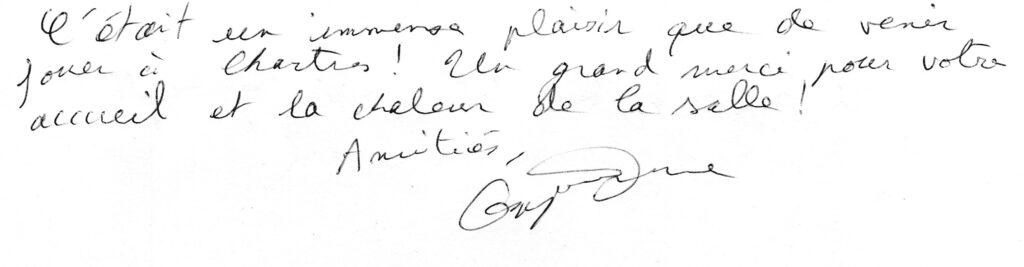 C'était un immense plaisir que de venir
jouer à Chartres ! Un grand merci pour votre
accueil et la chaleur de la salle !
Amitiés,